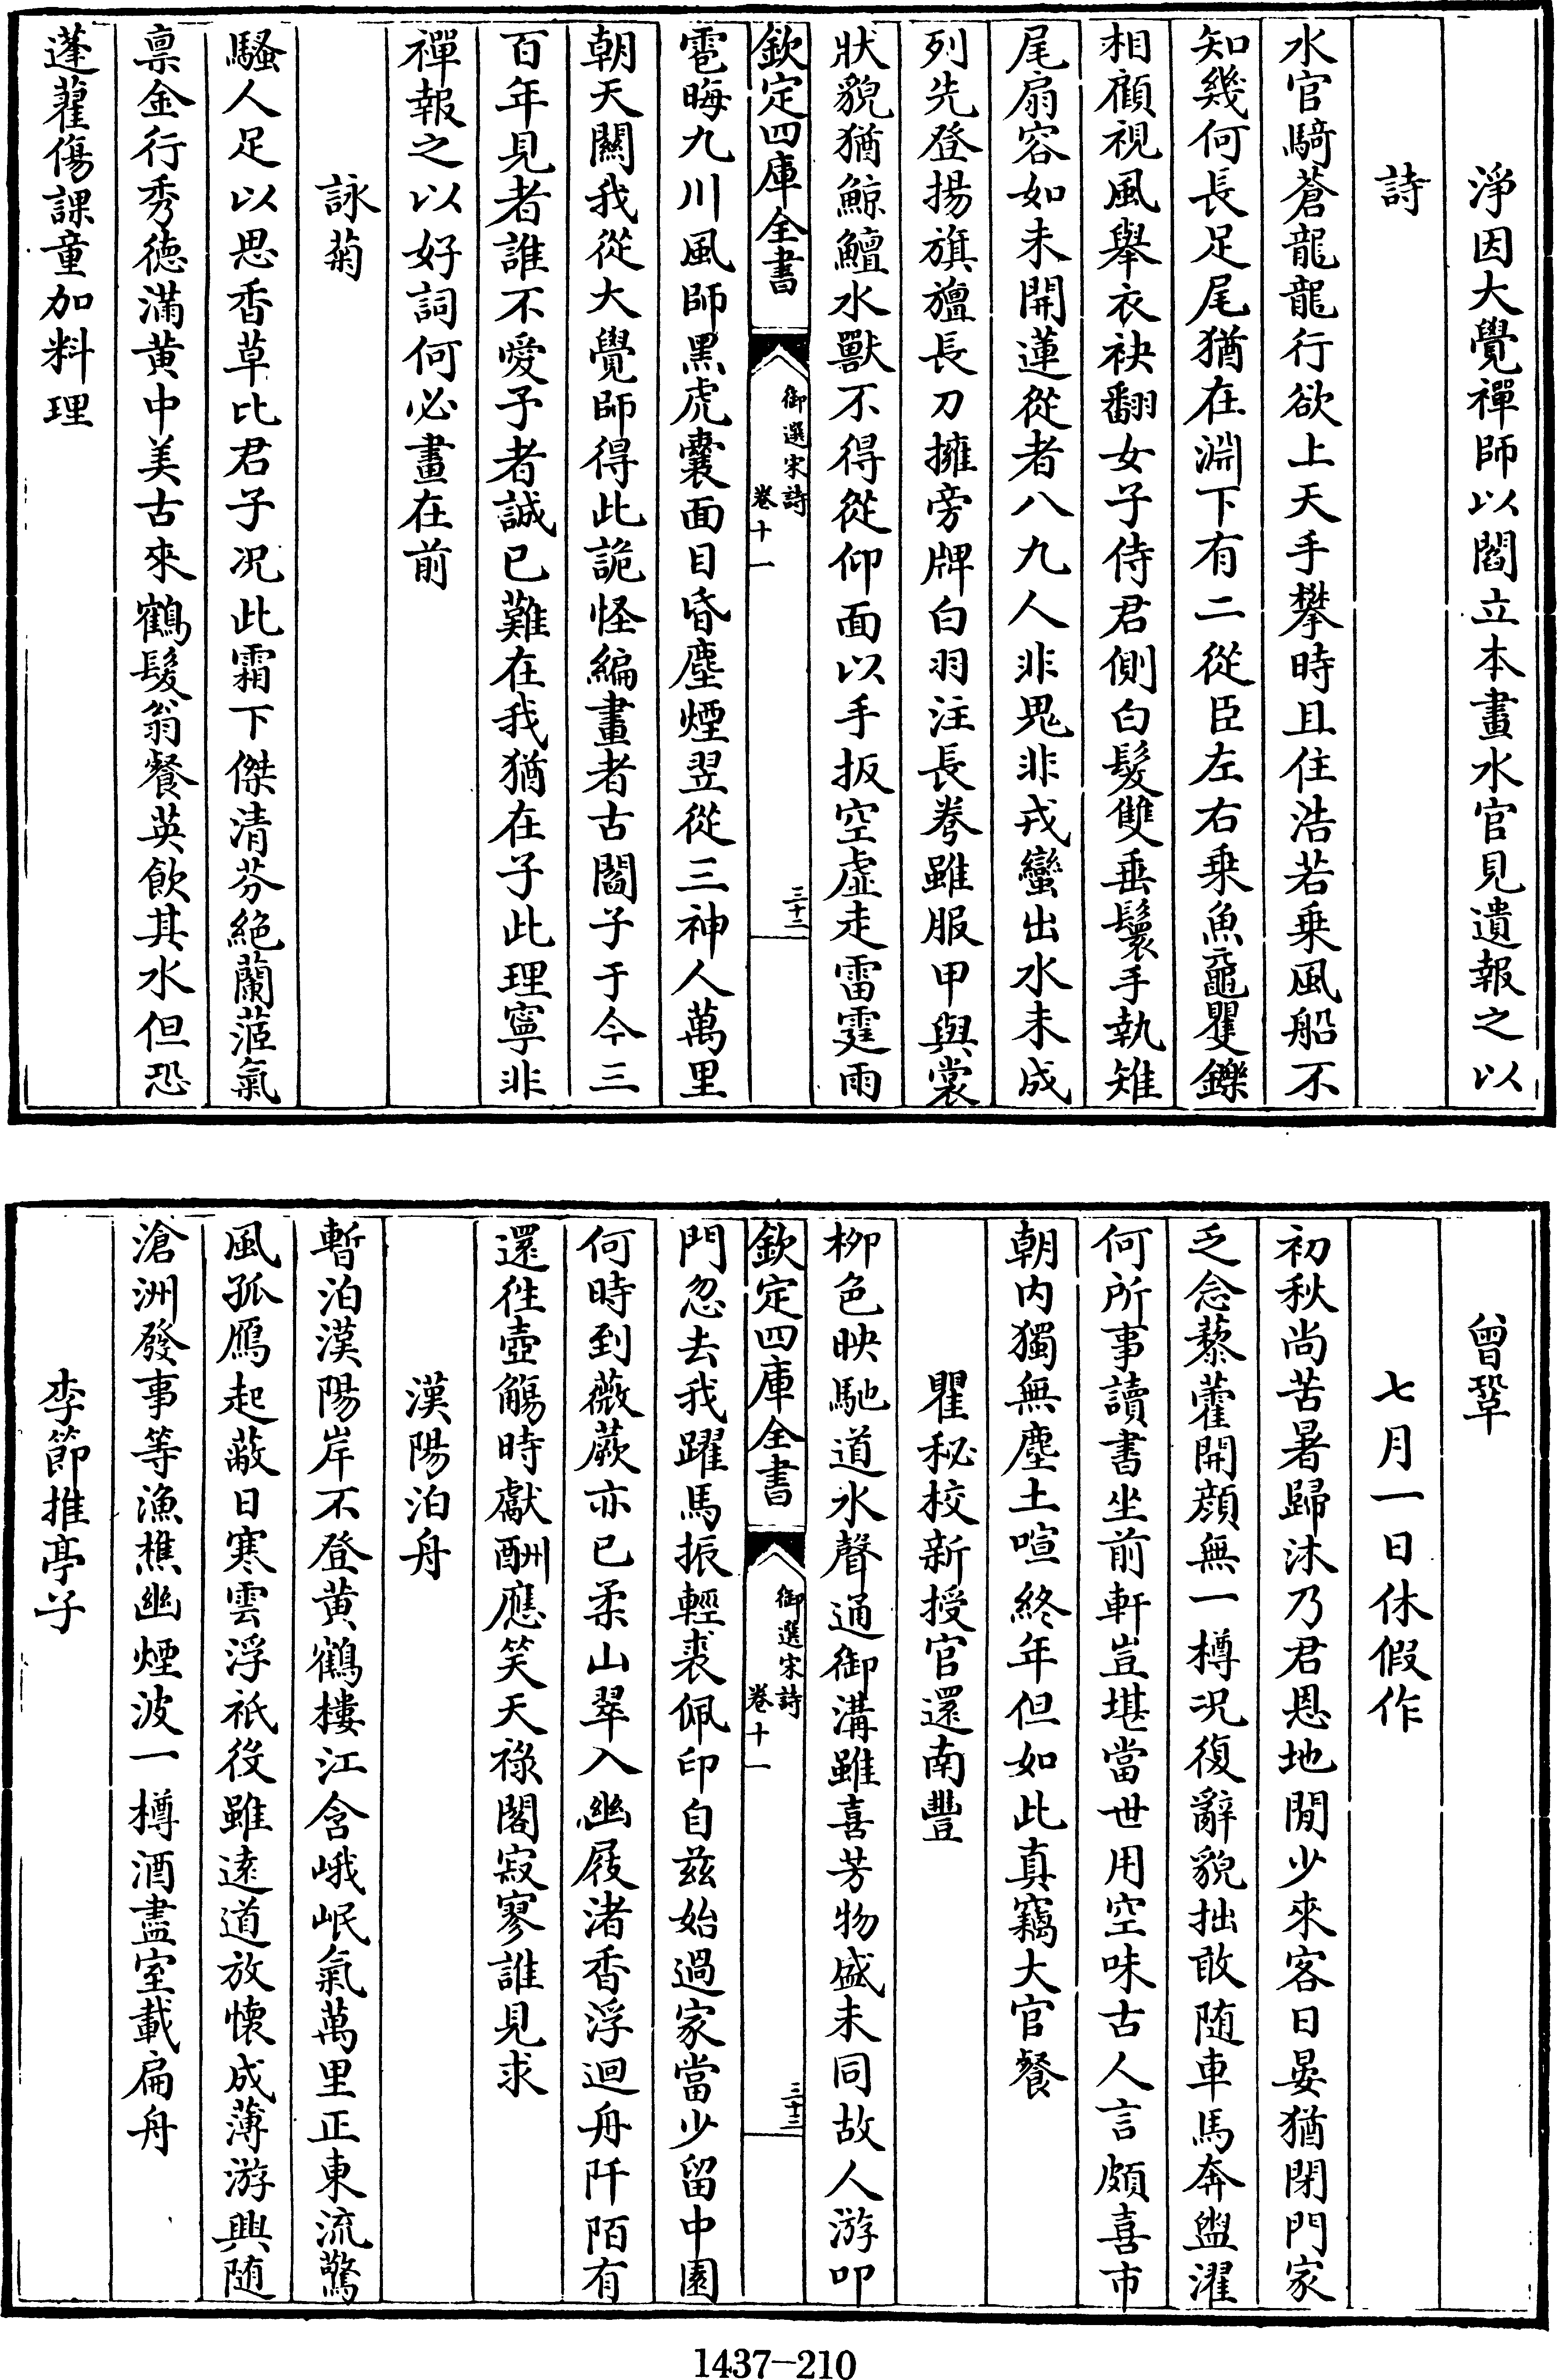 淨因大覺禪師以閻立本畫水官見遺報之以
詩
水官騎蒼龍龍行欲上天手攀時且住浩若乗風船不
知幾何長足尾猶在淵下有二從臣左右乗魚黿矍鑠
相顧視風舉衣袂翻女子侍君側白髮雙垂鬟手執雉
尾扇容如未開蓮從者八九人非鬼非戎蠻出水未成
列先登揚旗旜長刀擁旁牌白羽注長弮雖服甲與裳
狀貌猶鯨鱣水獸不得從仰面以手扳空虛走雷霆雨
欽定四庫全書
御選宋詩
卷十一
三十二
雹晦九川風師黒虎囊面目昏塵煙翌從三神人萬里
朝天闗我從大覺師得此詭怪編畫者古閻子于今三
百年見者誰不愛予者誠已難在我猶在子此理寧非
禪報之以好詞何必畫在前
詠菊
騷人足以思香草比君子况此霜下傑清芬絶蘭茝氣
禀金行秀徳滿黄中美古來鶴髮翁餐英飲其水但恐
蓬藋傷課童加料理
曾鞏
七月一日休假作
初秋尚苦暑歸沐乃君恩地閒少來客日晏猶閉門家
乏念藜藿開顔無一樽况復辭貌拙敢随車馬奔盥濯
何所事讀書坐前軒豈堪當世用空味古人言頗喜市
朝内獨無塵土喧終年但如此真竊大官餐
瞿秘校新授官還南豐
柳色映馳道水聲通御溝雖喜芳物盛未同故人游叩
欽定四庫全書
御選宋詩
卷十一
三十三
門忽去我躍馬振輕裘佩印自兹始過家當少留中園
何時到薇蕨亦已柔山翠入幽屐渚香浮迴舟阡陌有
還徃壺觴時獻酬應笑天祿閣寂寥誰見求
漢陽泊舟
暫泊漢陽岸不登黄鶴樓江含峨岷氣萬里正東流驚
風孤鴈起蔽日寒雲浮祇役雖逺道放懷成薄游興随
滄洲發事等漁樵幽煙波一樽酒盡室載扁舟
李節推亭子
1437-210